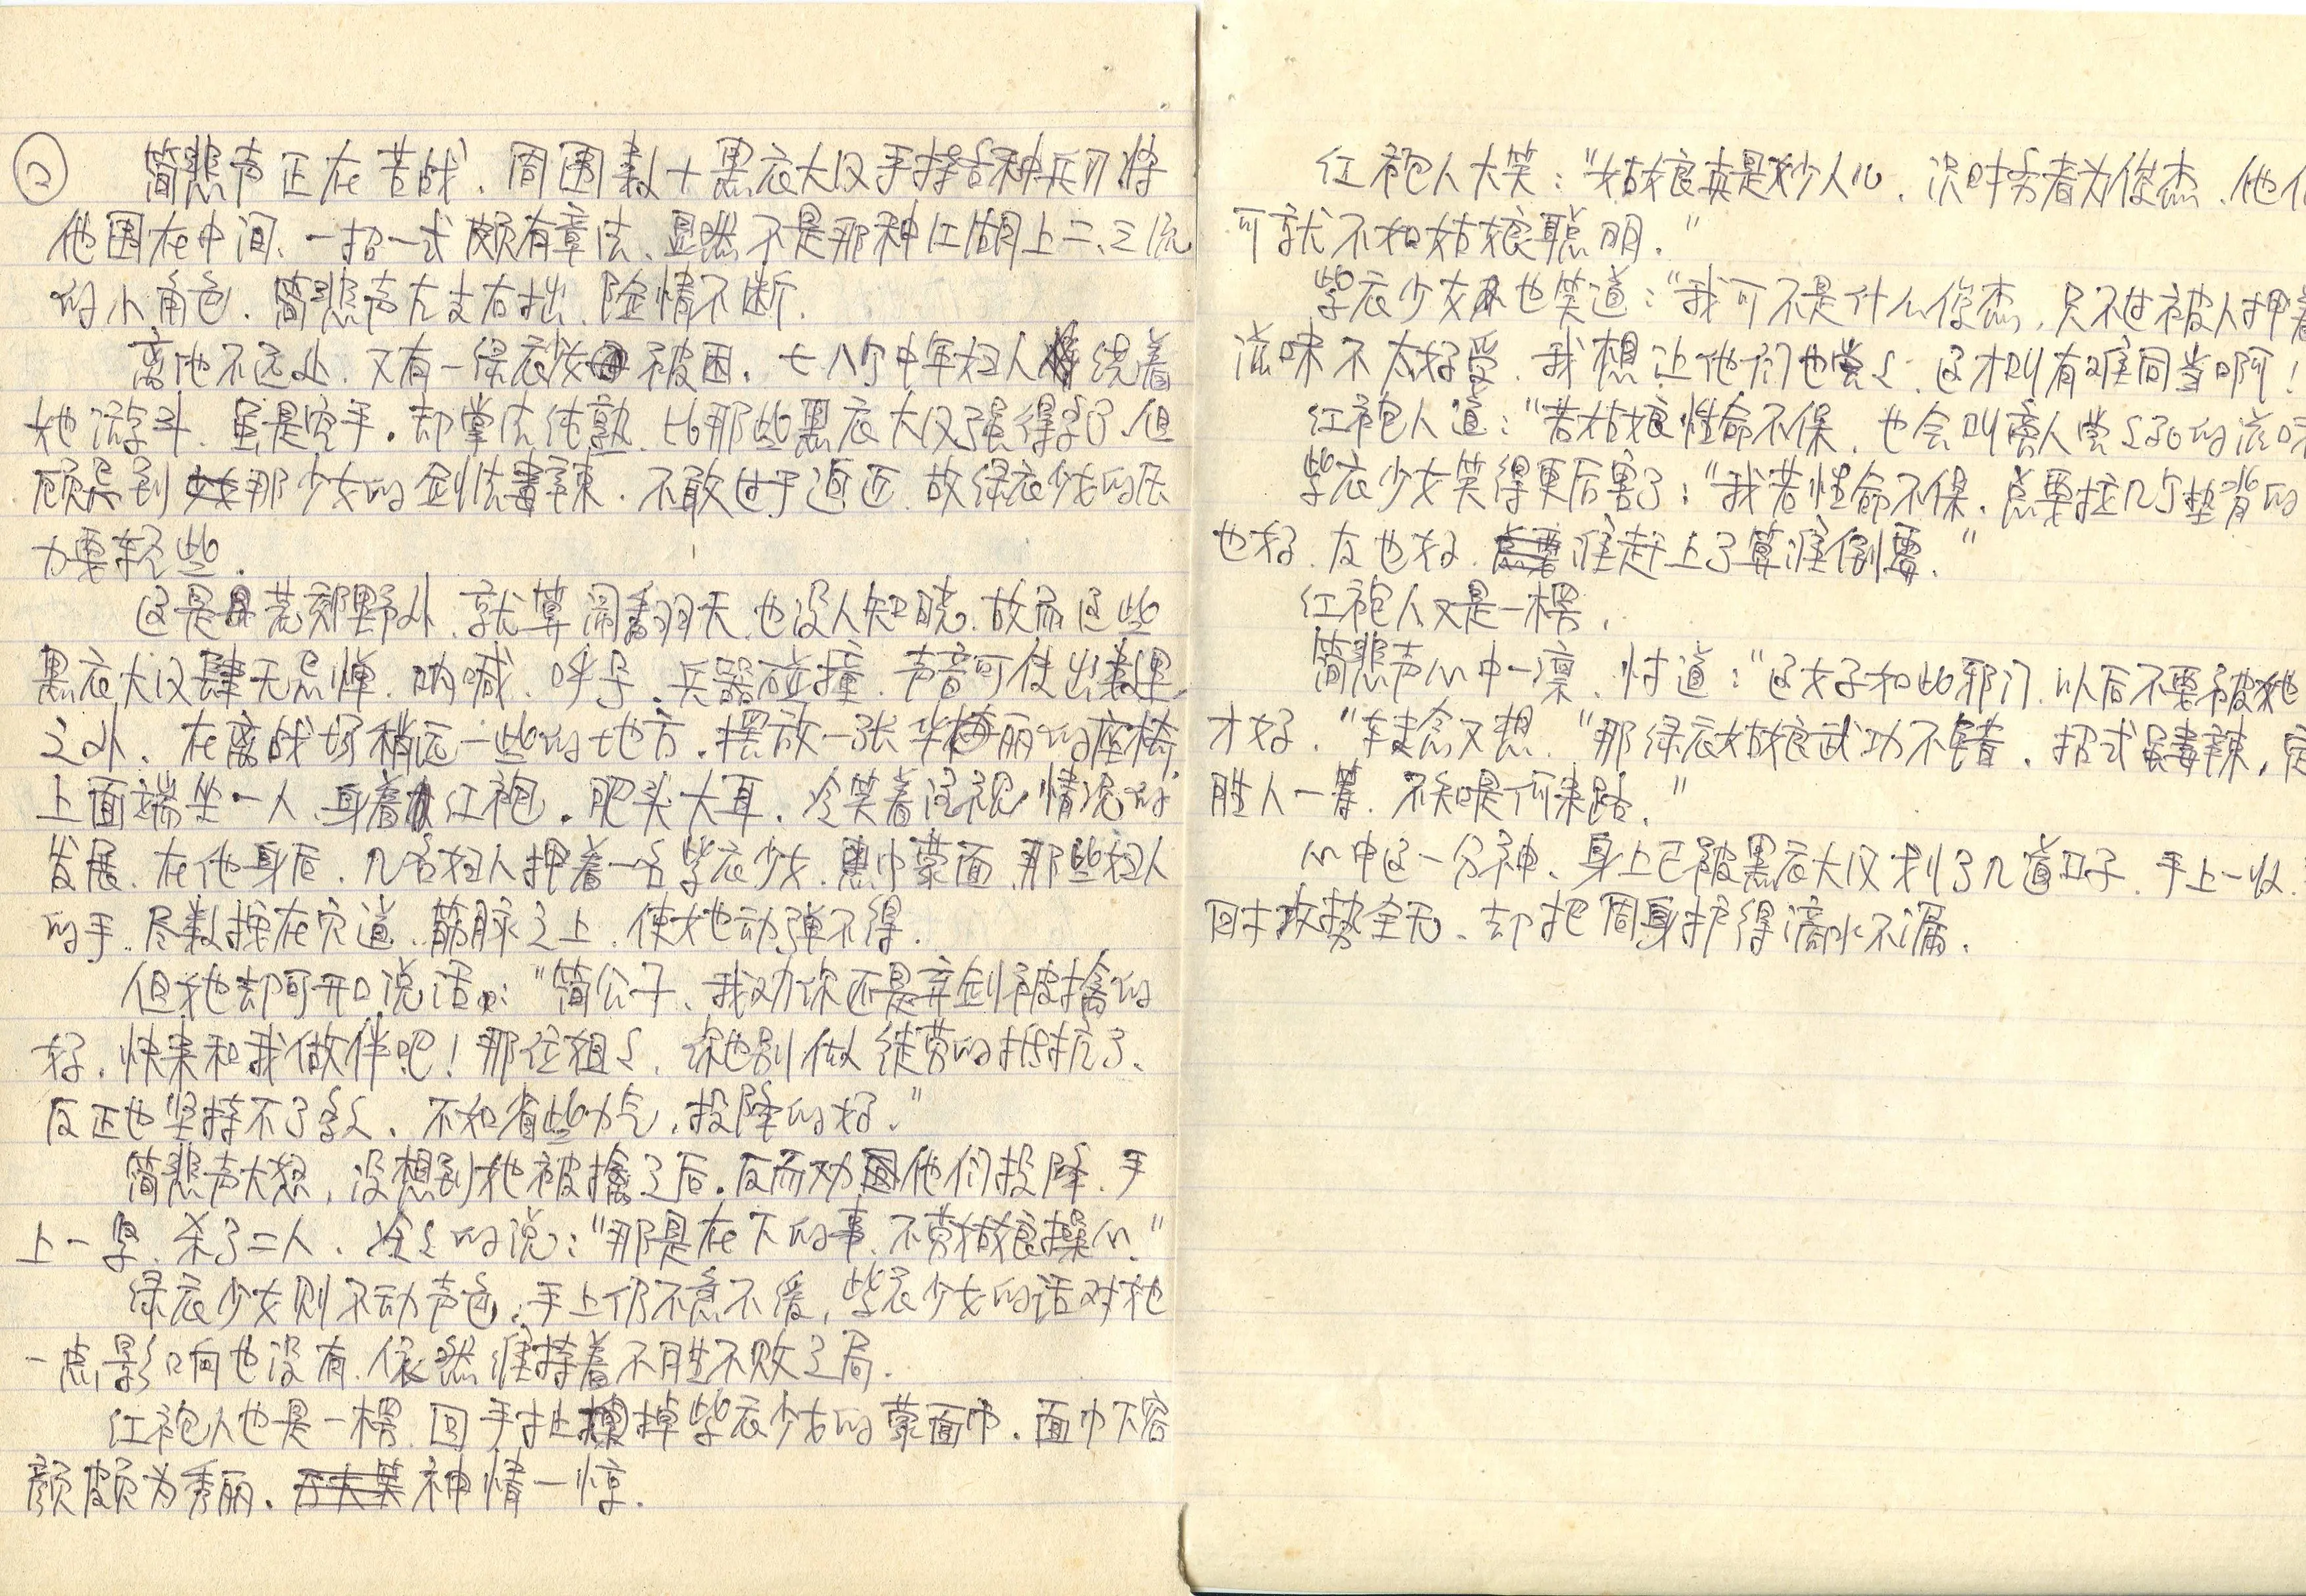 ②
简悲声正在苦战、周围数十黑衣大汉手持各种兵刃、将
他围在中间、一招一式颇有章法、显然不是那种江湖上二、三流
的小角色. 简悲声左支右拙、险情不断.
离他不远处、又有一绿衣少女被困. 七八个中年妇人绕着
她游斗、虽是空手. 却掌法纯熟、比那些黑衣大汉强得多了、但
顾忌到那少女的剑法毒辣. 不敢过于逼近、故绿衣少女的压
力要轻些.
这是荒郊野外、就算闹翻天、也没人知晓、故而这些
黑衣大汉肆无忌惮、呐喊、呼号、兵器碰撞、声音可传出数里
之外、在离战场稍远一些的地方. 摆放一张华丽的座椅
上面端坐一人、身着红袍. 肥头大耳. 冷笑着注视情况的
发展、在他身后. 几名妇人押着一名紫衣少女. 黑巾蒙面、那些妇人
的手、尽数按在穴道、筋脉之上、使她动弹不得.
但她却可开口说话: "简公子、我劝你还是弃剑被擒的
好. 快来和我做伴吧! 那位姐〻、你也别做徒劳的抵抗了、
反正也坚持不了多久、不如省些力气. 投降的好."
简悲声大怒, 没想到她被擒之后. 反而劝他们投降、手
上一紧、杀了二人. 冷〻的说: "那是在下的事、不劳姑娘操心."
绿衣少女则不动声色, 手上仍不急不缓, 紫衣少女的话对她
一点影响也没有、依然维持着不胜不败之局.
红袍人也是一楞、回手扯掉紫衣少女的蒙面巾. 面巾下容
颜颇为秀丽. 神情一惊.
红袍人大笑: "姑娘真是妙人儿、识时务者为俊杰、他们
可就不如姑娘聪明."
紫衣少女也笑道: "我可不是什么俊杰, 只不过被人押着
滋味不太好受、我想让他们也尝〻、这才叫有难同当啊!
红袍人道: "若姑娘性命不保、也会叫离人尝〻死的滋味
紫衣少女笑得更厉害了: "我若性命不保、总要拉几个垫背的
也好、友也好、谁赶上了算谁倒霉."
红袍人又是一楞.
简悲声心中一凛、忖道: "这女子如此邪门、以后不要被她
才好. "转念又想、"那绿衣姑娘武功不错、招式毒辣,
胜人一筹、不知是何来路."
心中这一分神、身上已被黑衣大汉划了几道口子、手上一收、
回攻势全无、却把周身护得滴水不漏.